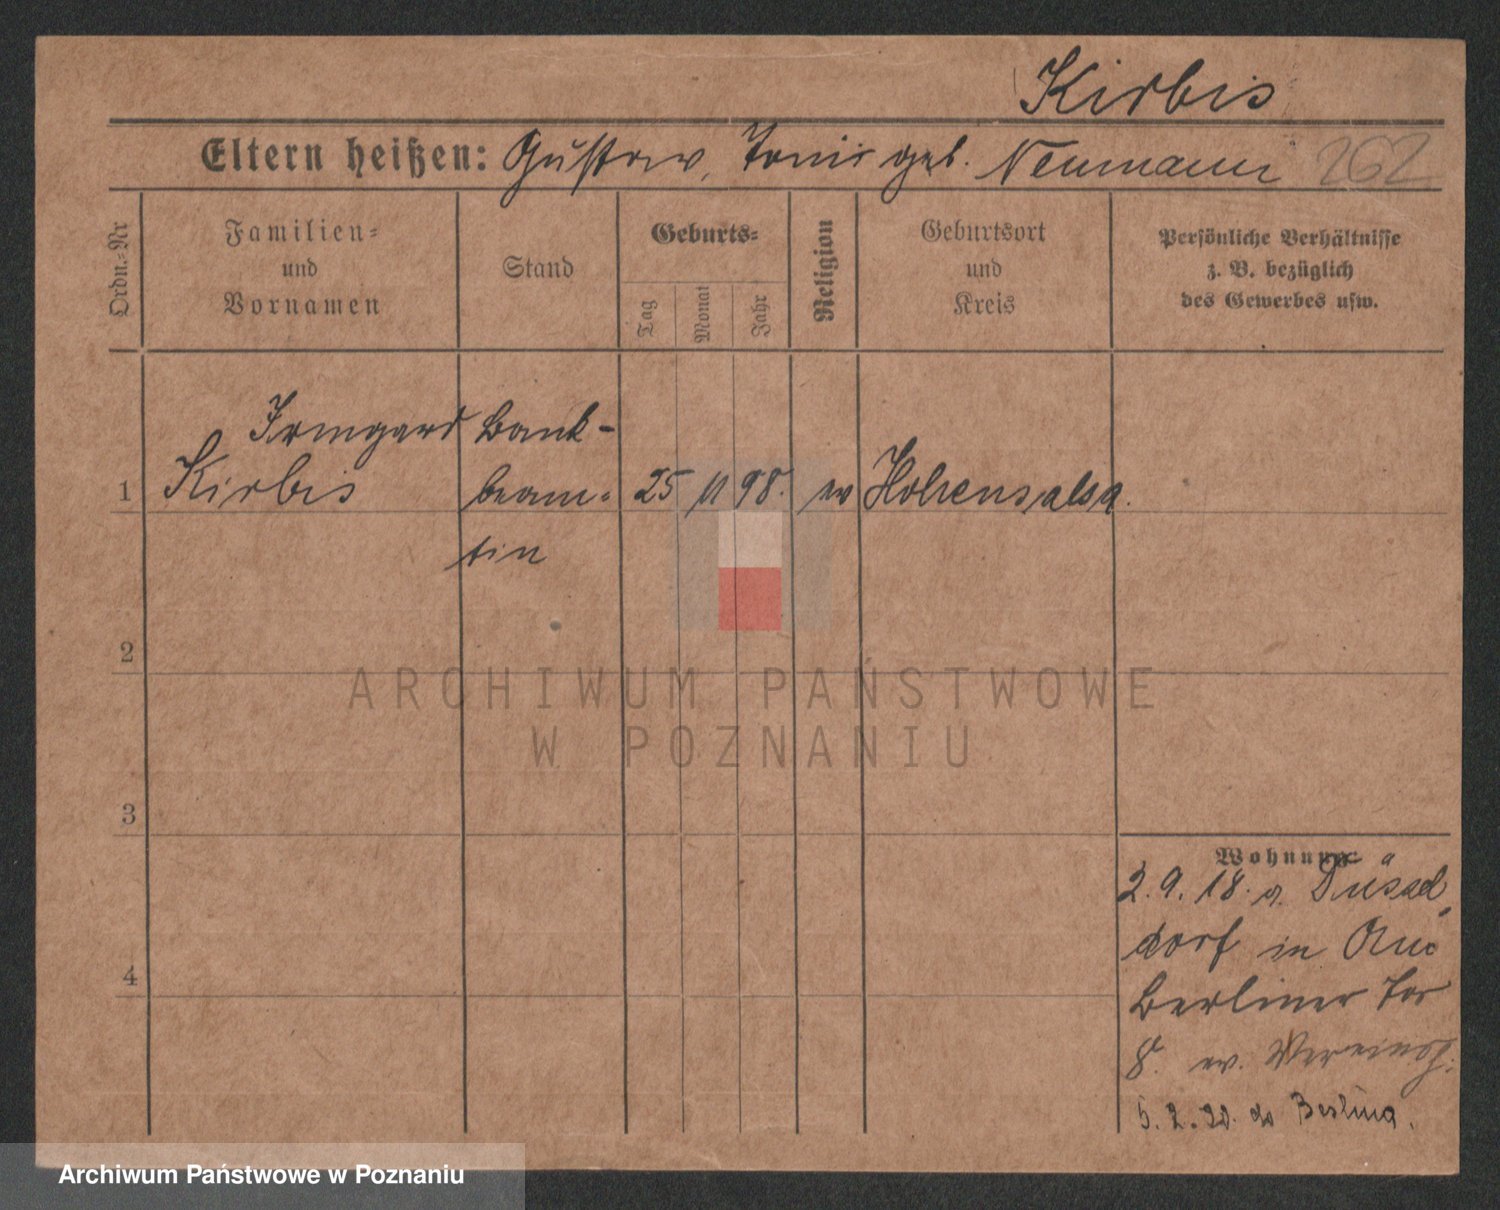 Kirbis
Eltern heißen: Gustav, Toni geb. Neumann 262
Ordn.-Nr
Familien-
und
Vornamen
Stand
Geburts-
Tag
Monat
Jahr
Religion
Geburtsort
und
Kreis
Persönliche Verhältnisse
z. B. bezüglich
des Gewerbes usw.
Irmgard Bank-
1 Kirbis beam- 25 11 98. ev Hohensalsa.
tin
2
ARCHIWUM PAŃSTWOWE
W POZNANIU
3
Wohnung:
2. 9. 18. a. Düssel
dorf in
4
Berliner Tor
8. ev. Vereinsh.
5. 2. 20. do Berlina.
Archiwum Państwowe w Poznaniu